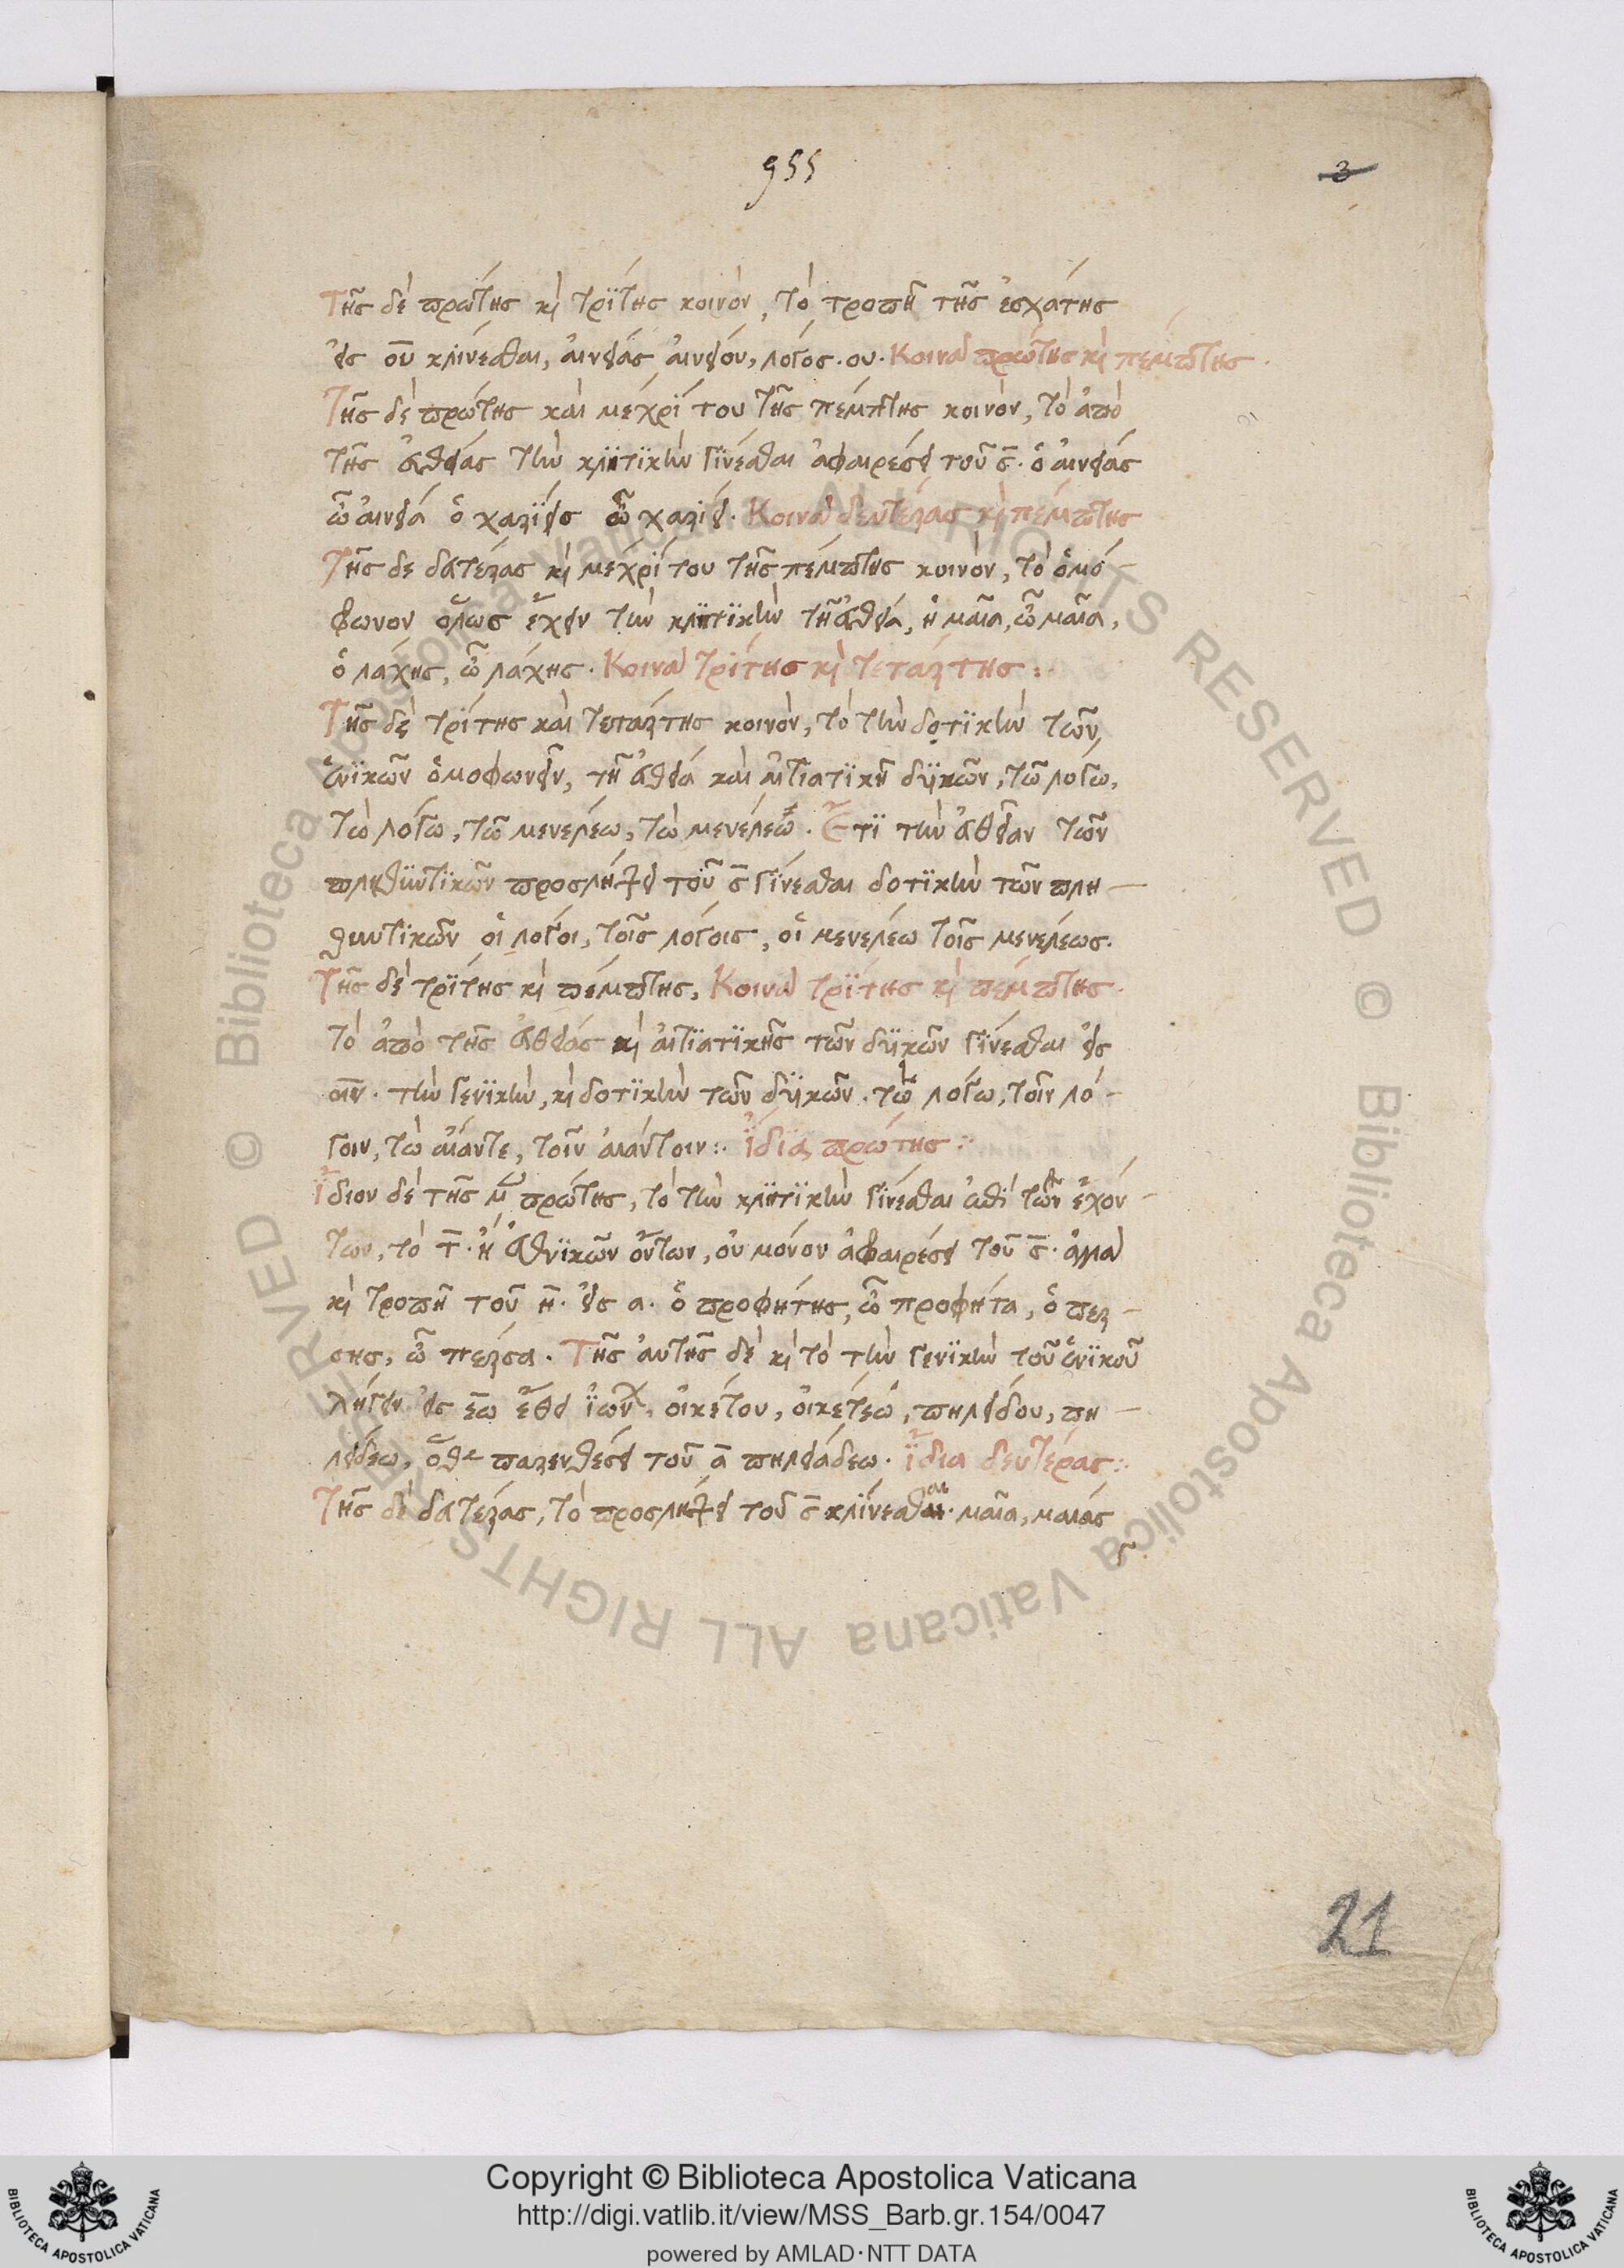 955
3
Τῆς δὲ πρώτης κὶ τρίτης κοινὸν, τὸ τροπῇ τῆς ἐσχάτης
εἰς ου κλίνεσθαι, αἰνείας αἰνείου, λόγος. ου. Κοινὰ πρώτης κὶ πέμπτης.
Τῆς δὲ πρώτης καὶ μέχρί του τῆς πέμπτης κοινὸν, τὸ ἀπὸ
τῆς εὐθείας τὴν κλητικὴν γίνεσθαι ἀφαιρέσει τοῦ ς. ὁ αἰνείας
ὦ αἰνεία ὁ χαρίεις ὦ χαρίει. Κοινὰ δευτέρας κὶ πέμπτης
Τῆς δε δευτέρας κὶ μέχρί του τῆς πέμπτης κοινὸν, τὸ ὁμό-
φωνον ὅλως ἔχειν τὴν κλητικὴν τῇ εὐθεία, ἡ μαῖα, ὦ μαῖα,
ὁ λάχης, ὦ λάχης. Κοινὰ τρίτης κὶ τετάρτης :.
Τῆς δὲ τρίτης καὶ τετάρτης κοινὸν, τὸ τὴν δοτικὴν τῶν
ἑνικῶν ὁμοφωνεῖν, τῇ εὐθεία καὶ αἰτιατικῇ δυικῶν, τῶ λόγω,
τὼ λόγω, τῶ μενελέω, τὼ μενελέω. Ἔτι τὴν εὐθεῖαν τῶν
πληθυντικῶν προσλήψει τοῦ ς γίνεσθαι δοτικὴν τῶν πλη-
θυντικῶν οἱ λόγοι, τοῖς λόγοις, οἱ μενελέω τοῖς μενελέως.
Τῆς δὲ τρίτης κὶ πέμπτης, Κοινὰ τρίτης κὶ πέμπτης.
τὸ ἀπὸ τῆς εὐθείας κὶ αἰτιατικῆς τῶν δυικῶν γίνεσθαι εἰς
οιν. τὴν γενικὴν, κὶ δοτικὴν τῶν δυικῶν. τὼ λόγω, τοῖν λό-
γοιν, τὼ αἴαντε, τοῖν αἰάντοιν :. ἴδια πρώτης :.
Ἴδιον δὲ τῆς μ πρώτης, τὸ τὴν κλητικὴν γίνεσθαι ἐπὶ τῶν ἐχόν-
των, τὸ τ. ἢ ἐθνικῶν ὄντων, οὐ μόνον ἀφαιρέσει τοῦ ς. ἀλλὰ
κὶ τροπῇ τοῦ η. εἰς α. ὁ προφήτης, ὦ προφῆτα, ὁ πέρ-
σης, ὦ πέρσα. Τῆς αὐτῆς δὲ κὶ τὸ τὴν γενικὴν τοῦ ἑνικοῦ
λήγειν εἰς εω ἔθει ἰων, οἰκέτου, οἰκέτεω, πηλείδου, πη-
λείδεω, ὅθε παρενθέσει τοῦ α πηλειάδεω. ἴδια δευτέρας :.
Τῆς δὲ δευτέρας, τὸ προσλήψει τοῦ ς κλίνεσθαι. μαῖα, μαιάς
21
© Biblioteca Apostolica Vaticana ALL RIGHTS RESERVED © Biblioteca Apostolica Vaticana ALL RIGHTS RESERVED
Copyright © Biblioteca Apostolica Vaticana
http://digi.vatlib.it/view/MSS_Barb.gr.154/0047
powered by AMLAD·NTT DATA
BIBLIOTECA APOSTOLICA VATICANA
BIBLIOTECA APOSTOLICA VATICANA